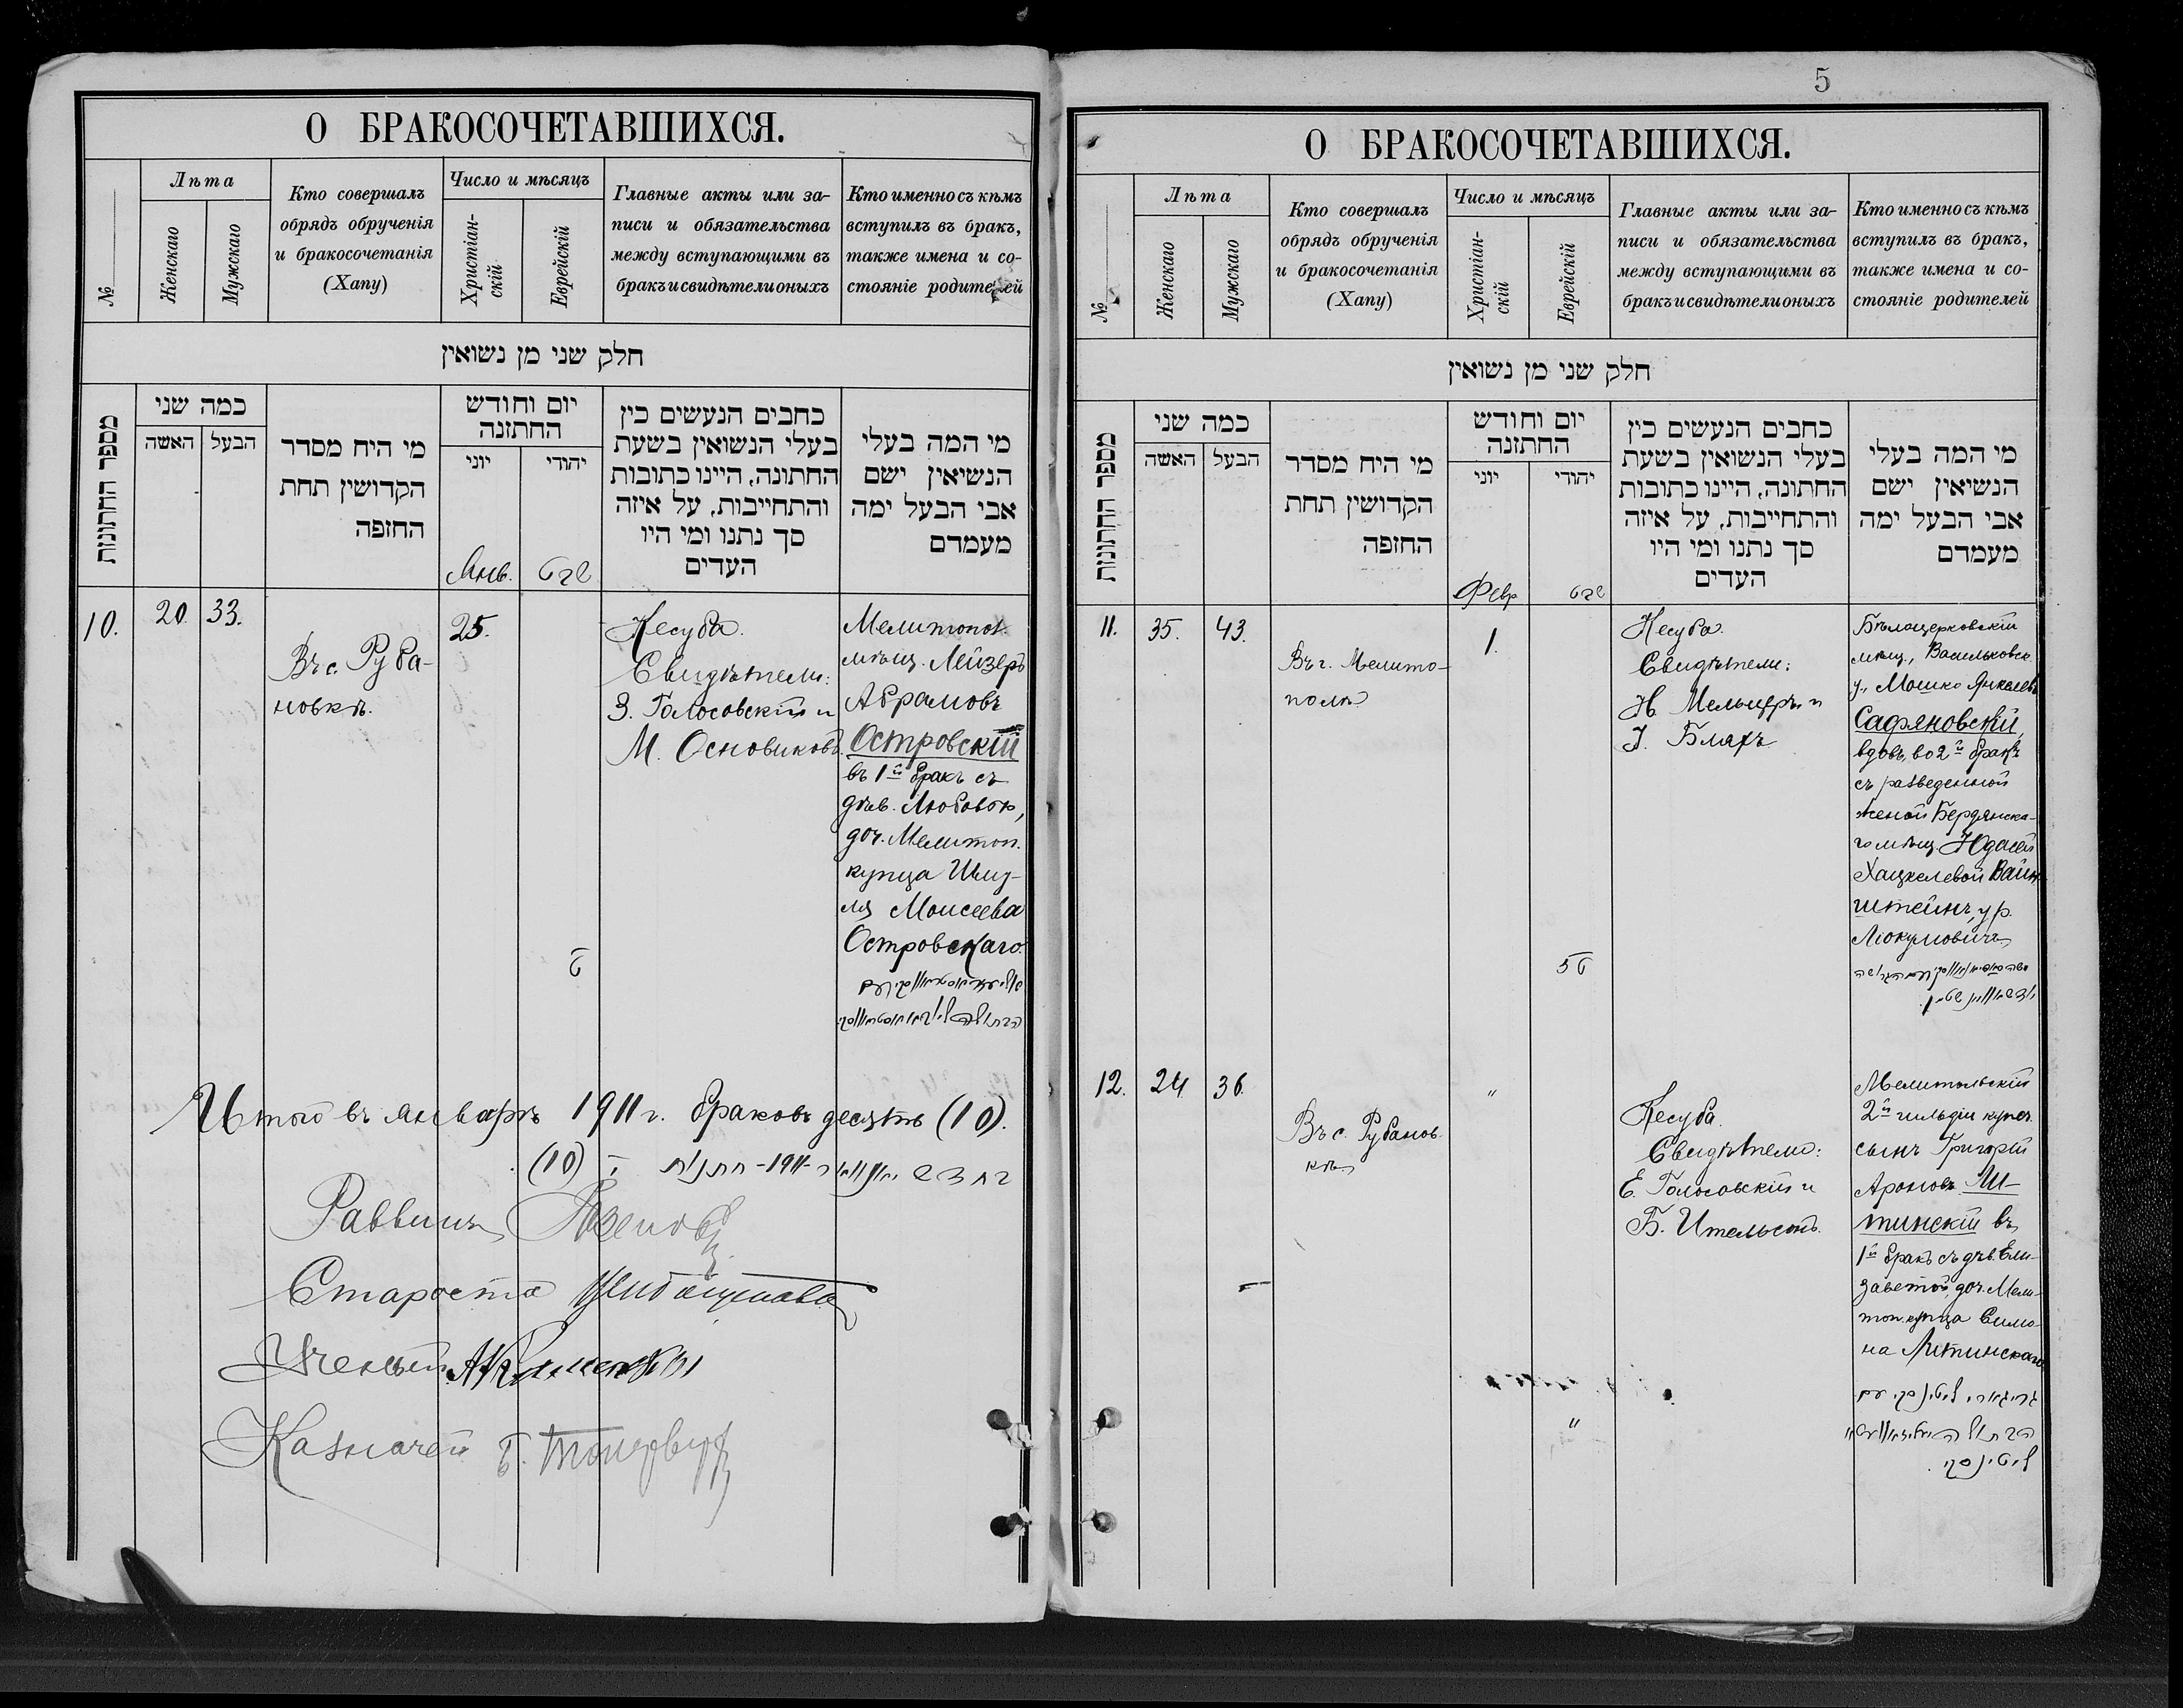 О БРАКОСОЧЕТАВШИХСЯ.
№
Лѣта
Женскаго
Мужскаго
Кто совершалъ
обрядъ обрученія
и бракосочетанія
(Хапу)
Число и мѣсяцъ
Христіан-
скій
Еврейскій
Главные акты или за-
писи и обязательства
между вступающими въ
бракъ и свидѣтели оныхъ
Кто именно съ кѣмъ
вступилъ въ бракъ,
также имена и со-
стояніе родителей
חלק שני מן נשואין
מספר החתונות
כמה שני
האשה
הבעל
מי היח מסדר
הקדושין תחת
החופה
יום וחודש
החתונה
יוני
יהודי
כחבים הנעשים כין
בעלי הנשואין בשעת
החתונה, היינו כתובות
והתחייבות, על איזה
סך נתנו ומי היו
העדים
מי המה בעלי
הנשיאין ישם
אבי הבעל ימה
מעמדם
Янв.
שבט
10.
20
33.
Въ с. Руба-
новкѣ.
25.
Кесуба.
Свидѣтели:
З. Голосовскій и
М. Основиковъ.
Мелитопол.
мѣщ. Лейзеръ
Абрамовъ
Островскій
въ 1й бракъ съ
дѣв. Любовью,
доч. Мелитоп.
купца Шму-
ля Моисеева
Островскаго.
Итого въ январѣ 1911 г. браковъ десять (10).
Раввинъ
Староста
Ученый
Казначей
5
О БРАКОСОЧЕТАВШИХСЯ.
№
Лѣта
Женскаго
Мужскаго
Кто совершалъ
обрядъ обрученія
и бракосочетанія
(Хапу)
Число и мѣсяцъ
Христіан-
скій
Еврейскій
Главные акты или за-
писи и обязательства
между вступающими въ
бракъ и свидѣтели оныхъ
Кто именно съ кѣмъ
вступилъ въ бракъ,
также имена и со-
стояніе родителей
חלק שני מן נשואין
מספר החתונות
כמה שני
האשה
הבעל
מי היח מסדר
הקדושין תחת
החופה
יום וחודש
החתונה
יוני
יהודי
כחבים הנעשים כין
בעלי הנשואין בשעת
החתונה, היינו כתובות
והתחייבות, על איזה
סך נתנו ומי היו
העדים
מי המה בעלי
הנשיאין ישם
אבי הבעל ימה
מעמדם
Февр
שבט
11.
35.
43.
Въ г. Мелито-
полѣ
1.
Кесуба.
Свидѣтели:
Н. Мельцеръ и
І. Бляхъ
Бѣлоцерковскій
мѣщ., Васильковск.
у., Мошко Янкелевъ
Сафяновскій,
вдовъ, во 2й бракъ
съ разведенной
женой Бердянска-
го мѣщ. Юдасей
Хацкелевой Вайн-
штейнъ, ур.
Люкумовичъ
12.
24
36
Въ с. Рубанов-
кѣ
"
Кесуба.
Свидѣтели:
Е. Голосовскій и
Б. Ительсонъ.
Мелитопольскій
2й гильдіи купеч.
сынъ Григорій
Ароновъ Ли-
тинскій въ
1й бракъ съ дѣв. Ели-
заветой, доч. Мели-
топ. купца Симо-
на Литинскаго
"